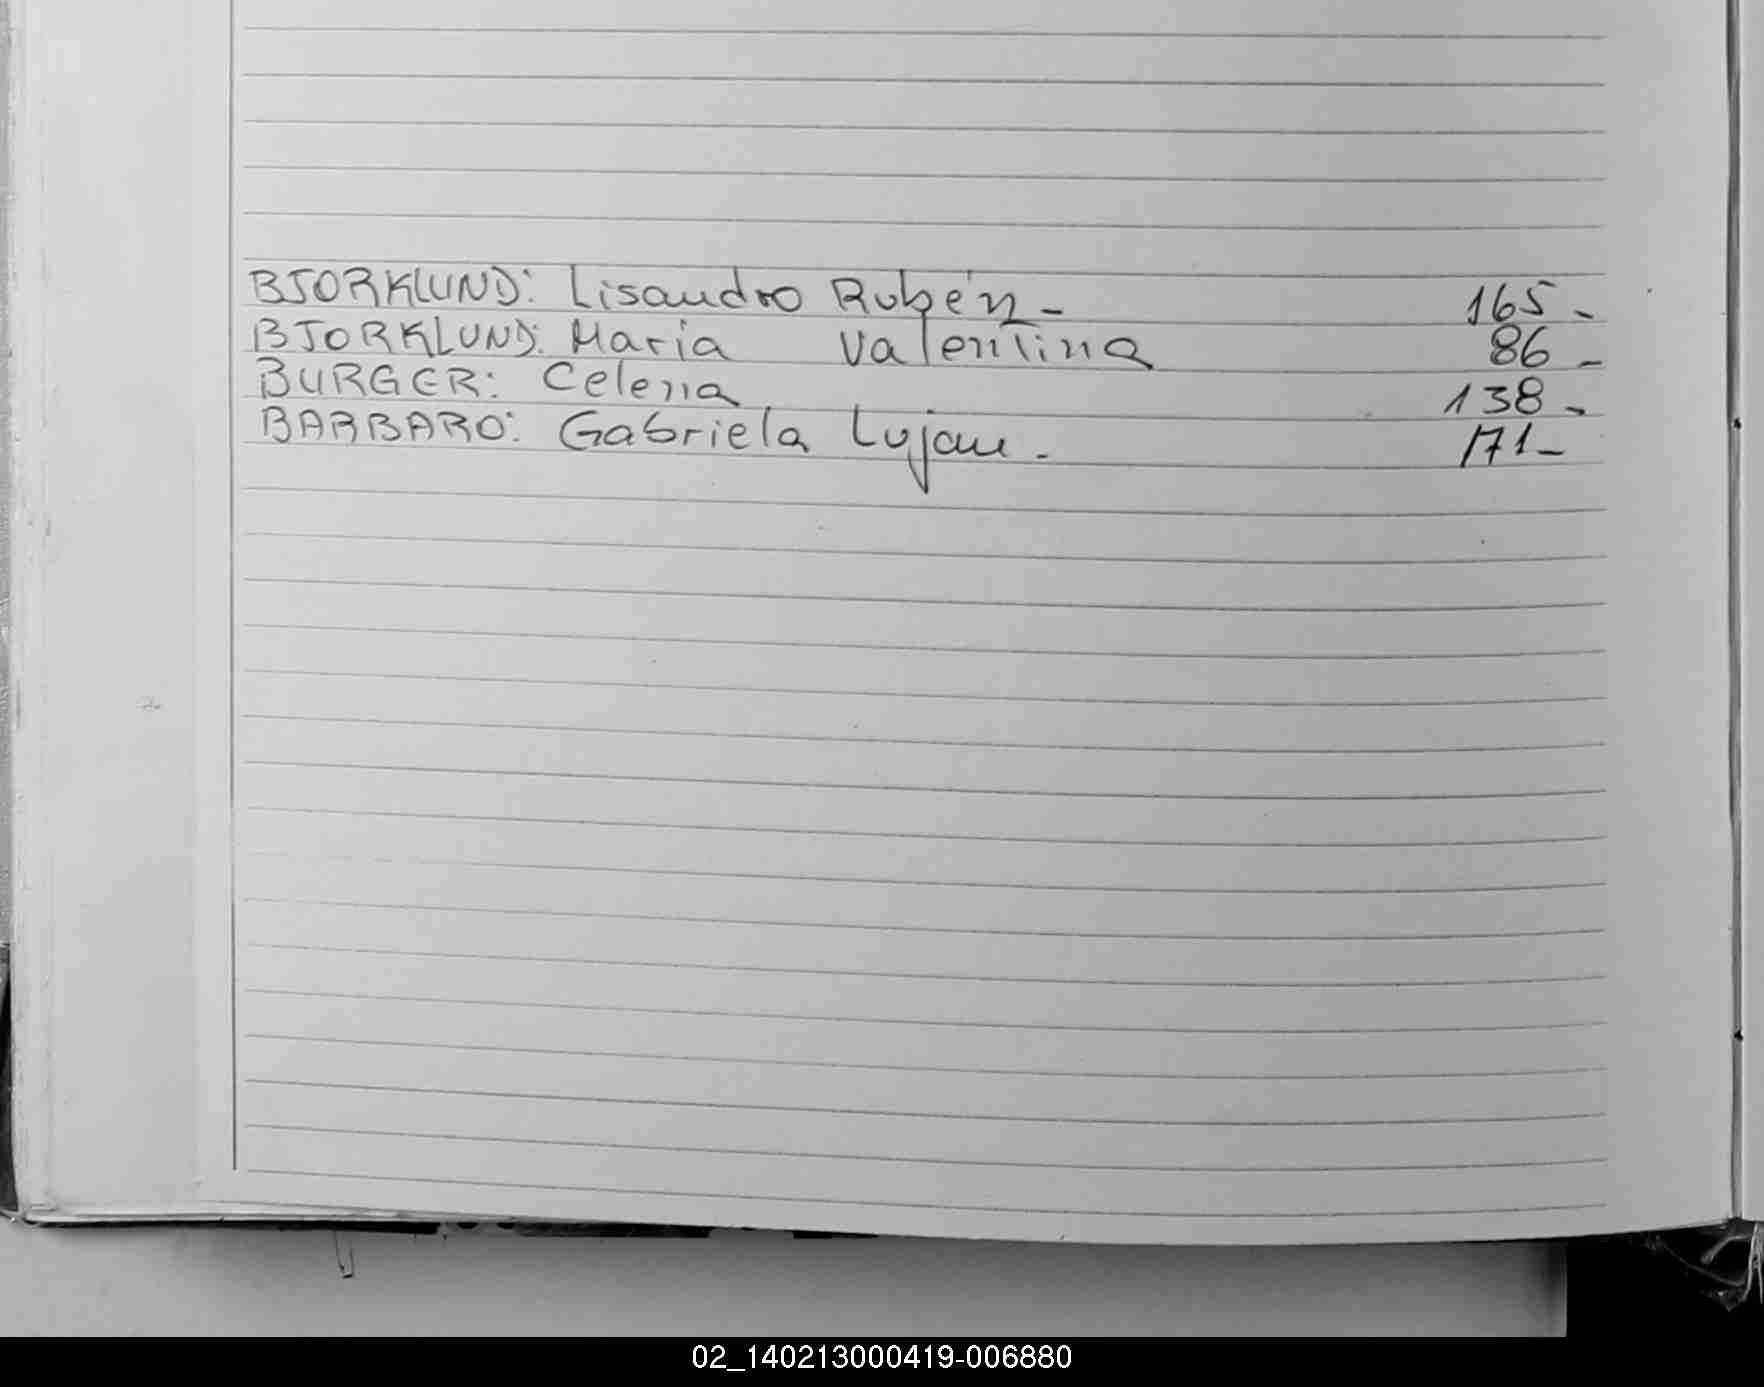 BJORKLUND: Lisandro Rubén - 165 -
BJORKLUND: Maria Valentina 86 -
BURGER: Celena 138 -
BARBARO: Gabriela Lujan - 171 -
02_140213000419-006880